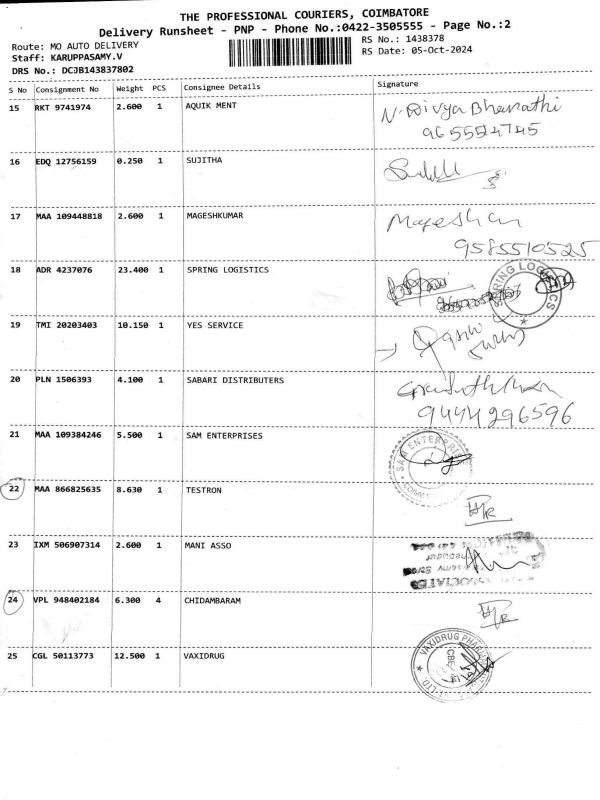 THE PROFESSIONAL COURIERS, COIMBATORE
Delivery Runsheet - PNP - Phone No.:0422-3505555 - Page No.:2
Route: MO AUTO DELIVERY
RS No.: 1438378
Staff: KARUPPASAMY.V
RS Date: 05-Oct-2024
DRS No.: DCJB143837802
S No Consignment No Weight PCS Consignee Details Signature
15 RKT 9741974 2.600 1 AQUIK MENT N. Divya Bharathi
16 EDQ 12756159 0.250 1 SUJITHA
17 MAA 109448818 2.600 1 MAGESHKUMAR
9585510525
18 ADR 4237076 23.400 1 SPRING LOGISTICS
SPRING LOGISTICS
19 TMI 20203403 10.150 1 YES SERVICE
20 PLN 1506393 4.100 1 SABARI DISTRIBUTERS
9444296596
21 MAA 109384246 5.500 1 SAM ENTERPRISES
SAM ENTERPRIS
22 MAA 866825635 8.630 1 TESTRON
23 IXM 506907314 2.600 1 MANI ASSO
24 VPL 948402184 6.300 4 CHIDAMBARAM
25 CGL 50113773 12.500 1 VAXIDRUG
VAXIDRUG
CBE